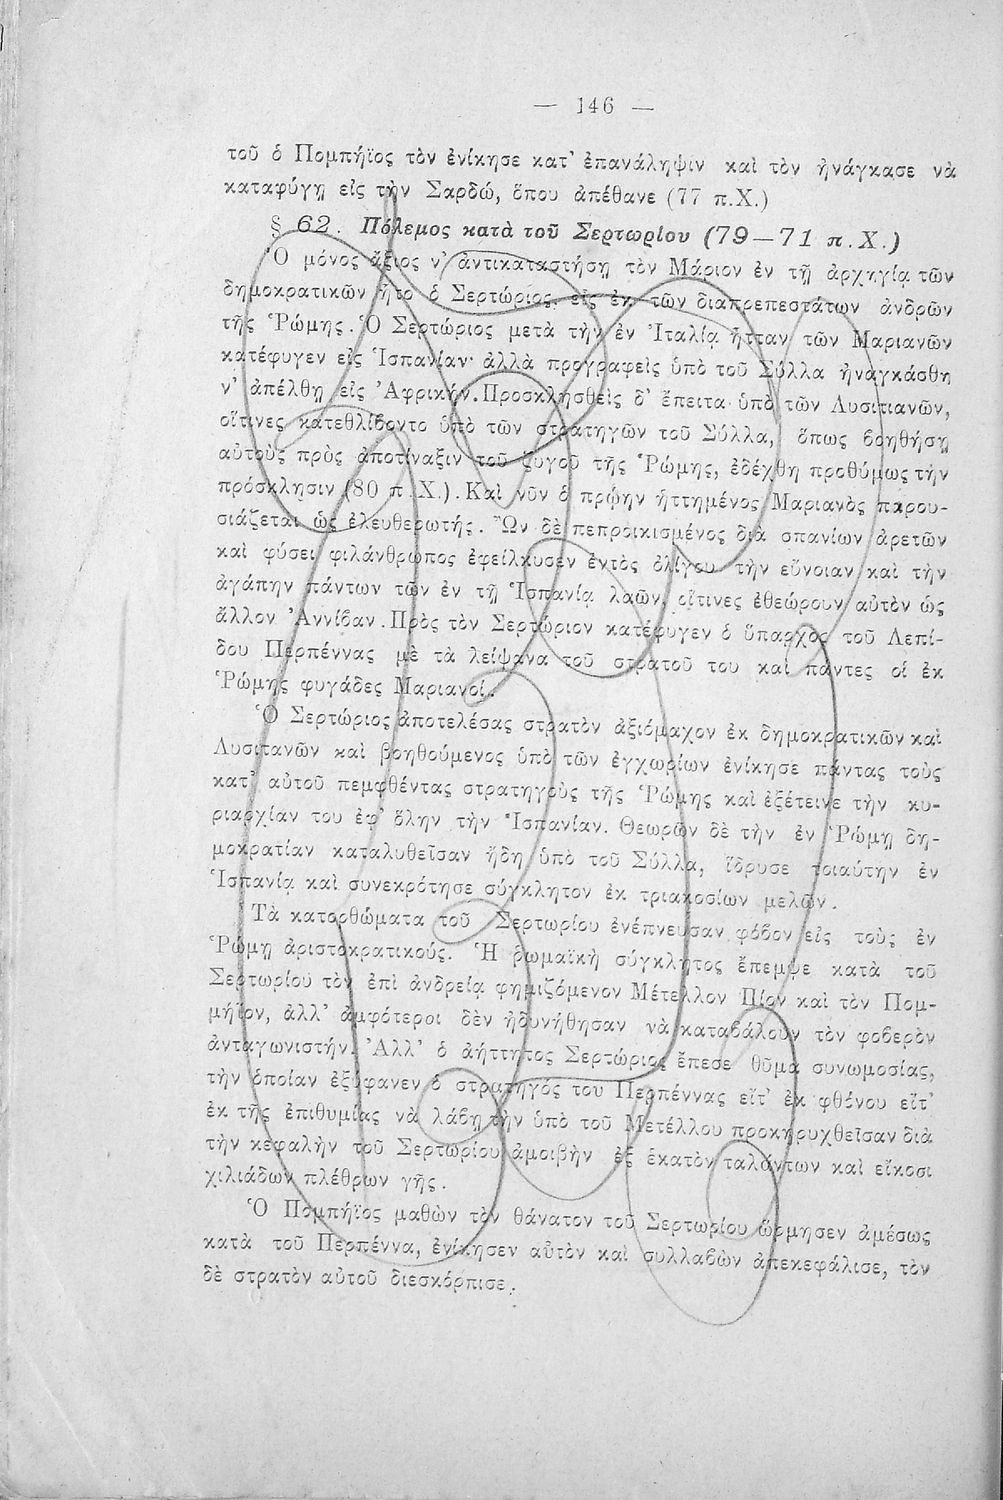 — 146 —
τοῦ ὁ Πομπήϊος τὸν ἐνίκησε κατ' ἐπανάληψιν καὶ τὸν ἠνάγκασε νὰ
καταφύγῃ εἰς τὴν Σαρδώ, ὅπου ἀπέθανε (77 π.Χ.)
§ 62. Πόλεμος κατὰ τοῦ Σερτωρίου (79—71 π.Χ.)
Ὁ μόνος ἄξιος ν' ἀντικαταστήσῃ τὸν Μάριον ἐν τῇ ἀρχηγίᾳ τῶν
δημοκρατικῶν ἦτο ὁ Σερτώριος, εἷς ἐκ τῶν διαπρεπεστάτων ἀνδρῶν
τῆς Ῥώμης. Ὁ Σερτώριος μετὰ τὴν ἐν Ἰταλίᾳ ἧτταν τῶν Μαριανῶν
κατέφυγεν εἰς Ἱσπανίαν· ἀλλὰ προγραφεὶς ὑπὸ τοῦ Σύλλα ἠναγκάσθη
ν' ἀπέλθῃ εἰς Ἀφρικήν. Προσκληθεὶς δ' ἔπειτα ὑπὸ τῶν Λυσιτιανῶν,
οἵτινες κατεθλίβοντο ὑπὸ τῶν στρατηγῶν τοῦ Σύλλα, ὅπως βοηθήσῃ
αὐτοὺς πρὸς ἀποτίναξιν τοῦ ζυγοῦ τῆς Ῥώμης, ἐδέχθη προθύμως τὴν
πρόσκλησιν (80 π.Χ.). Καὶ νῦν ὁ πρῴην ἡττημένος Μαριανὸς παρου-
σιάζεται ὡς ἐλευθερωτής. Ὢν δὲ πεπροικισμένος διὰ σπανίων ἀρετῶν
καὶ φύσει φιλάνθρωπος ἐφείλκυσεν ἐντὸς ὀλίγου τὴν εὔνοιαν καὶ τὴν
ἀγάπην πάντων τῶν ἐν τῇ Ἱσπανίᾳ λαῶν, οἵτινες ἐθεώρουν αὐτὸν ὡς
ἄλλον Ἀννίβαν. Πρὸς τὸν Σερτώριον κατέφυγεν ὁ ὕπαρχος τοῦ Λεπί-
δου Περπέννας μὲ τὰ λείψανα τοῦ στρατοῦ του καὶ πάντες οἱ ἐκ
Ῥώμης φυγάδες Μαριανοί.
Ὁ Σερτώριος ἀποτελέσας στρατὸν ἀξιόμαχον ἐκ δημοκρατικῶν καὶ
Λυσιτανῶν καὶ βοηθούμενος ὑπὸ τῶν ἐγχωρίων ἐνίκησε πάντας τοὺς
κατ' αὐτοῦ πεμφθέντας στρατηγοὺς τῆς Ῥώμης καὶ ἐξέτεινε τὴν κυ-
ριαρχίαν του ἐφ' ὅλην τὴν Ἱσπανίαν. Θεωρῶν δὲ τὴν ἐν Ῥώμῃ δη-
μοκρατίαν καταλυθεῖσαν ἤδη ὑπὸ τοῦ Σύλλα, ἵδρυσε τοιαύτην ἐν
Ἱσπανίᾳ καὶ συνεκρότησε σύγκλητον ἐκ τριακοσίων μελῶν.
Τὰ κατορθώματα τοῦ Σερτωρίου ἐνέπνευσαν φόβον εἰς τοὺς ἐν
Ῥώμῃ ἀριστοκρατικούς. Ἡ ῥωμαϊκὴ σύγκλητος ἔπεμψε κατὰ τοῦ
Σερτωρίου τὸν ἐπὶ ἀνδρείᾳ φημιζόμενον Μέτελλον Πίον καὶ τὸν Πομ-
μήϊον, ἀλλ' ἀμφότεροι δὲν ἠδυνήθησαν νὰ καταβάλουν τὸν φοβερὸν
ἀνταγωνιστήν. Ἀλλ' ὁ ἀήττητος Σερτώριος ἔπεσε θῦμα συνωμοσίας,
τὴν ὁποίαν ἐξύφανεν ὁ στρατηγός του Περπέννας εἴτ' ἐκ φθόνου εἴτ'
ἐκ τῆς ἐπιθυμίας νὰ λάβῃ τὴν ὑπὸ τοῦ Μετέλλου προκηρυχθεῖσαν διὰ
τὴν κεφαλὴν τοῦ Σερτωρίου ἀμοιβὴν ἐξ ἑκατὸν ταλάντων καὶ εἴκοσι
χιλιάδων πλέθρων γῆς.
Ὁ Πομπήϊος μαθὼν τὸν θάνατον τοῦ Σερτωρίου ὥρμησεν ἀμέσως
κατὰ τοῦ Περπέννα, ἐνίκησεν αὐτὸν καὶ συλλαβὼν ἀπεκεφάλισε, τὸν
δὲ στρατὸν αὐτοῦ διεσκόρπισε.